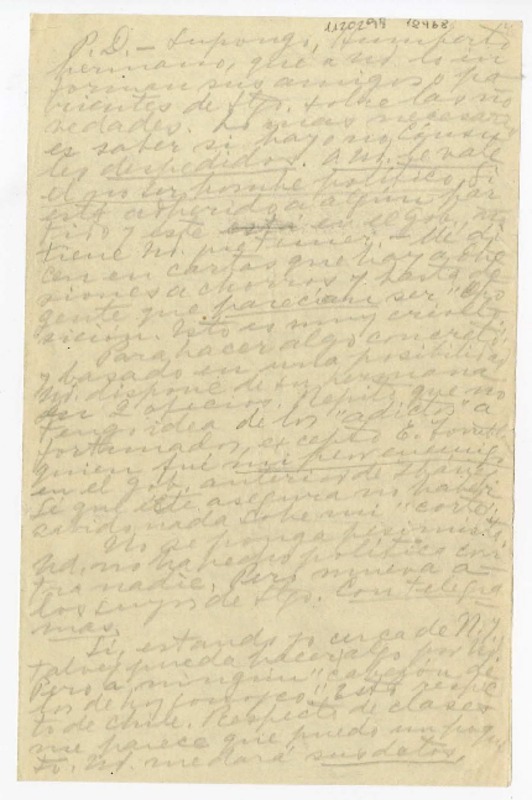 1120299 12468
P. D. – Supongo, Humberto
hermano, que a Ud. lo in
forman sus amigos o pa
rientes de Stgo. sobre las no
vedades. Lo mas necesario
es saber si hay o no Consu
les despedidos. A Ud. le vale
el no ser hombre político. Si
está adherido a algún par
tido y este está en el gob. no
tiene Ud. que temer. – Me di
cen en cartas que hay adhe
siones a chorros y hasta de
gente que parecían ser "opo
sición. Esto es muy criollo.
Para hacer algo concreto,
y basado en una posibilidad
Ud. dispone de su hermana
en 2 oficios. Repito que no
tengo idea de los "adictos" a
fortunados, excepto E.
quien fué mi peor enemigo
en el gob. anterior de Ibañez
Sé que éste asegura no haber
sabido nada sobre mi "corte".
No se ponga pesimista,
Ud. no ha hecho política con
tra nadie. Pero mueva a
los suyos de Stgo. Con telegra
mas.
Si, estando yo cerca de N. Y.
talvez pueda hacer algo por Ud.
Pero a ningún "cabezón de
los de hoy conozco". Esto respec
to de Chile. Respecto de clases
me parece que puedo un poqui
to. Ud. me dará sus datos.